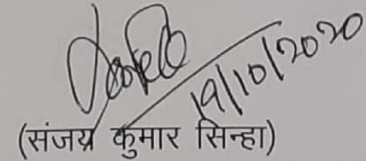 19/10/2020
(संजय कुमार सिन्हा)